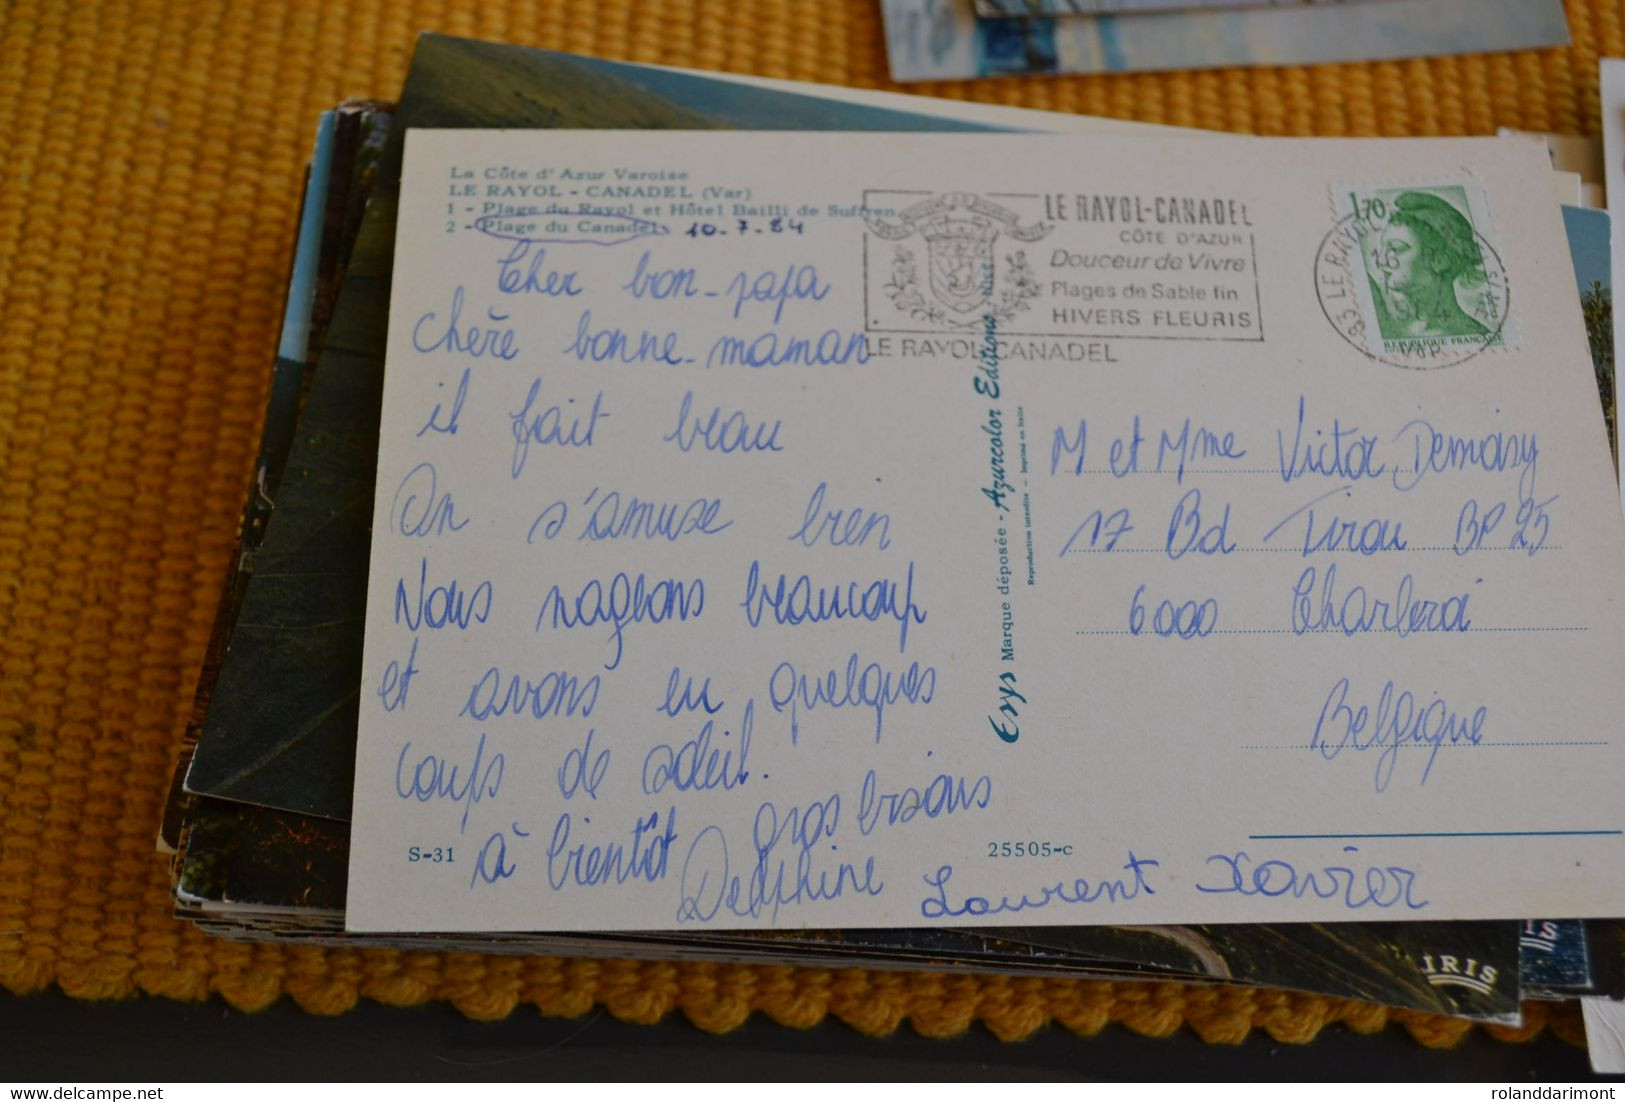 La Côte d'Azur Varoise
LE RAYOL - CANADEL (Var)
1 - Plage du Rayol et Hôtel Bailli de Suffren
2 - Plage du Canadel 10.7.84
Cher bon-papa
chère bonne-maman
il fait beau
On s'amuse bien
Nous nageons beaucoup
et avons eu quelques
coups de soleil.
à bientôt gros bisous
Delphine Laurent Xavier
S-31
25505-c
LE RAYOL-CANADEL
CÔTE D'AZUR
Douceur de Vivre
Plages de Sable fin
HIVERS FLEURIS
LE RAYOL CANADEL
1,70
REPUBLIQUE FRANÇAISE
83 LE RAYOL
VAR
Esys Marque déposée - Azurcolor Editions
Reproduction interdite - Imprimé en Italie
M et Mme Victor Demasy
17 Bd Tirou BP 25
6000 Charleroi
Belgique
IRIS
delcampe.net
rolanddarimont